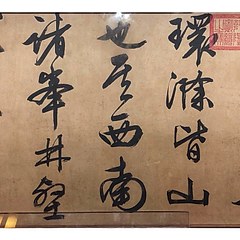 環滁皆山
也其西南
諸峯林壑